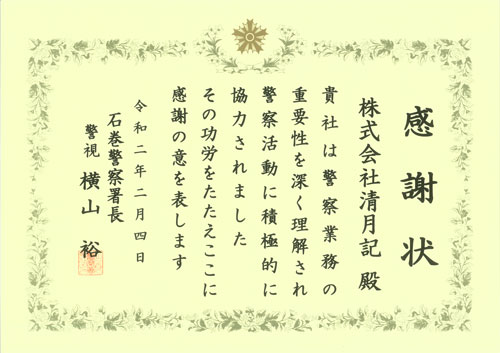 感謝状
株式会社清月記 殿
貴社は警察業務の
重要性を深く理解され
警察活動に積極的に
協力されました
その功労をたたえここに
感謝の意を表します
令和二年二月四日
石巻警察署長
警視 横山 裕